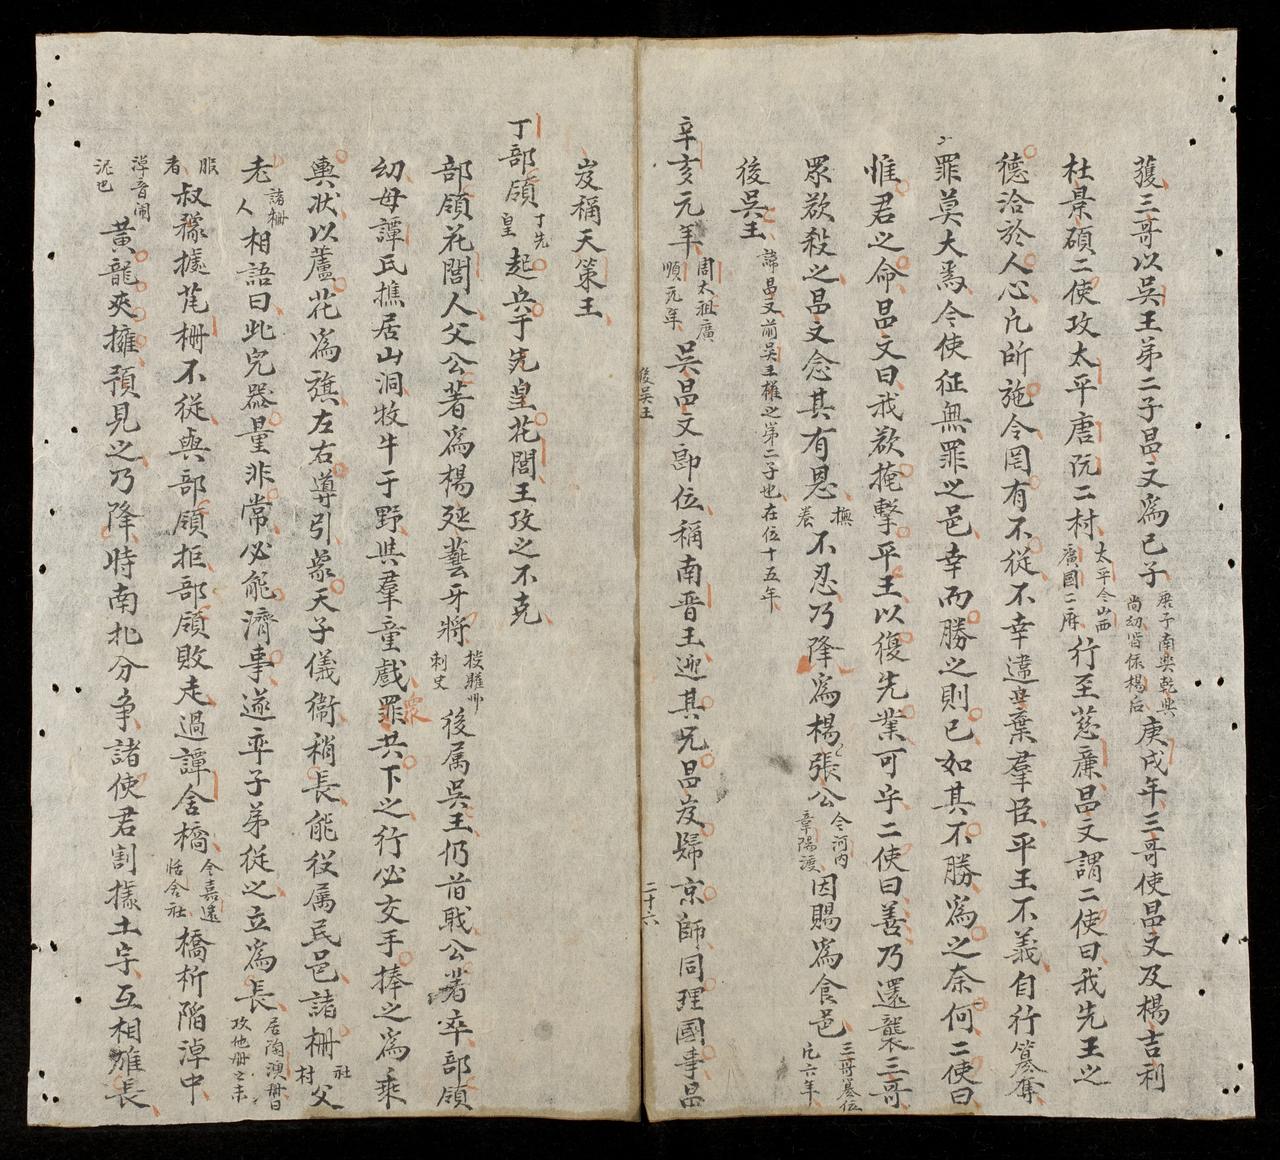 獲三哥以吳王弟二子昌文爲己子庚子南興乾興尚幼皆係楊后庚戌年三哥使昌文及楊吉利
杜景碩二使攻太平唐阮二村太平今山西廣國二府行至慈廉昌文謂二使曰我先王之
德洽於人心凢所施令罔有不從不幸違世棄羣臣平王不義自行篡奪
罪莫大焉今使征無罪之邑幸而勝之則已如其不勝爲之奈何二使曰
惟君之命昌文曰我欲掩擊平王以復先業可乎二使曰善乃還襲三哥
眾欲殺之昌文念其有恩撫養不忍乃降爲楊張公今河內章陽渡因賜爲食邑三哥篡位凢六年
後吳王諱昌文前吳王權之第二子也在位十五年
辛亥元年周太祖廣順元年吳昌文卽位稱南晋王迎其兄昌岌歸京師同理國事昌
後吳王 二十六
岌稱天策王
丁部領丁先皇起兵于先皇花閭王攻之不克
部領花閭人父公著爲楊延藝牙將授驩州刺史後属吳王仍舊戢公著卒部領
幼母譚氏樵居山洞牧牛于野與羣童戲罪眾共下之行必交手捧之爲乘
輿狀以蘆花爲旗左右導引象天子儀衞稍長能役属民邑諸柵社村父
老諸柵人相語曰此児器量非常必能濟事遂率子弟從之立爲長居陶澳柵日攻他册之未
服者叔豫據芄柵不從與部領拒部領敗走過譚舍橋今嘉遠恬舍社橋析陷淖中
淖音閙泥也黃龍夾擁預見之乃降時南北分争諸使君割據土宇互相雄長